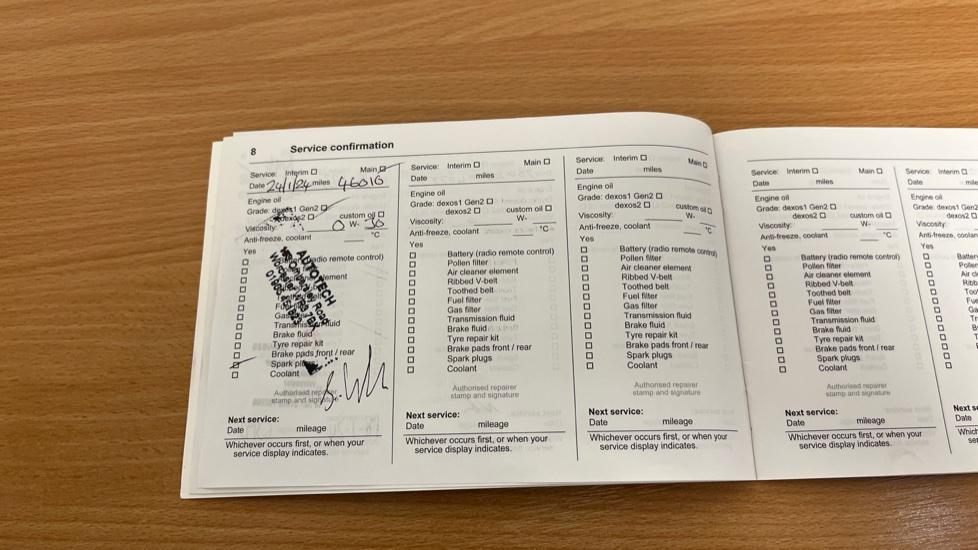 8 Service confirmation
Service: Interim Main
Date 24/1/24 miles 46016
Engine oil
Grade: dexos1 Gen2
dexos2 custom oil
Viscosity: 0 W- 30
Anti-freeze, coolant °C
Yes
(radio remote control)
AUTOTECH
Road
element
Transmission fluid
Brake fluid
Tyre repair kit
Brake pads front / rear
Spark plugs
Coolant
Authorised repairer
stamp and signature
Next service:
Date mileage
Whichever occurs first, or when your
service display indicates.
Service: Interim Main
Date miles
Engine oil
Grade: dexos1 Gen2
dexos2 custom oil
Viscosity: W-
Anti-freeze, coolant °C
Yes
Battery (radio remote control)
Pollen filter
Air cleaner element
Ribbed V-belt
Toothed belt
Fuel filter
Gas filter
Transmission fluid
Brake fluid
Tyre repair kit
Brake pads front / rear
Spark plugs
Coolant
Authorised repairer
stamp and signature
Next service:
Date mileage
Whichever occurs first, or when your
service display indicates.
Service: Interim Main
Date miles
Engine oil
Grade: dexos1 Gen2
dexos2 custom oil
Viscosity: W-
Anti-freeze, coolant °C
Yes
Battery (radio remote control)
Pollen filter
Air cleaner element
Ribbed V-belt
Toothed belt
Fuel filter
Gas filter
Transmission fluid
Brake fluid
Tyre repair kit
Brake pads front / rear
Spark plugs
Coolant
Authorised repairer
stamp and signature
Next service:
Date mileage
Whichever occurs first, or when your
service display indicates.
Service: Interim Main
Date miles
Engine oil
Grade: dexos1 Gen2
dexos2 custom oil
Viscosity: W-
Anti-freeze, coolant °C
Yes
Battery (radio remote control)
Pollen filter
Air cleaner element
Ribbed V-belt
Toothed belt
Fuel filter
Gas filter
Transmission fluid
Brake fluid
Tyre repair kit
Brake pads front / rear
Spark plugs
Coolant
Authorised repairer
stamp and signature
Next service:
Date mileage
Whichever occurs first, or when your
service display indicates.
Service: Interim
Date
Engine oil
Grade: dexos1 Gen2
dexos2
Viscosity:
Anti-freeze, coolant
Yes